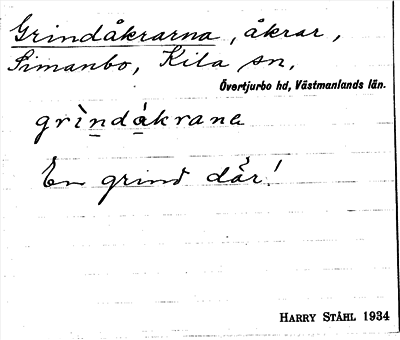 Grindåkrarna, åkrar,
Simanbo, Kila sn,
Övertjurbo hd, Västmanlands län.
grìndåkrana
En grind där!
HARRY STÅHL 1934